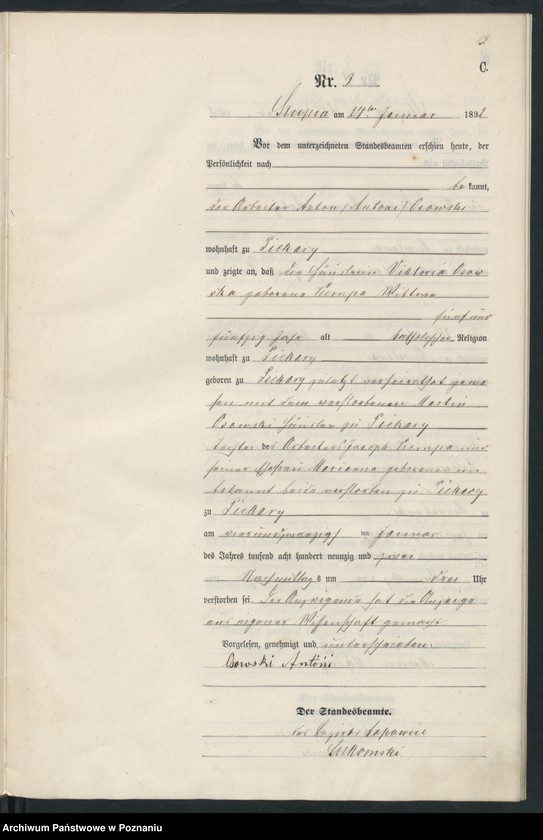 C.
Nr. 3
Slupia am 24ten Januar 1892
Vor dem unterzeichneten Standesbeamten erschien heute, der
Persönlichkeit nach
bekannt,
der Arbeiter Anton (Antoni) Osowski
wohnhaft zu Piekary
und zeigte an, daß die Häuslerin Viktoria Osow-
ska geborene Kempa Wittwe
fünf und
fünfzig Jahr alt katholischer Religion
wohnhaft zu Piekary
geboren zu Piekary zuletzt verheirathet gewe-
sen mit dem verstorbenen Martin
Osowski Häusler zu Piekary
Tochter des Arbeiters Joseph Kempa und
seiner Ehefrau Marianna geborene un-
bekannt beide verstorben zu Piekary
zu Piekary
am vierundzwanzigsten Januar
des Jahres tausend acht hundert neunzig und zwei
Nachmittags um drei Uhr
verstorben sei. Der Anzeigende hat die Anzeige
aus eigener Wissenschaft gemacht.
Vorgelesen, genehmigt und unterschrieben.
Osowski Antoni
Der Standesbeamte.
des Bezirks
Archiwum Państwowe w Poznaniu